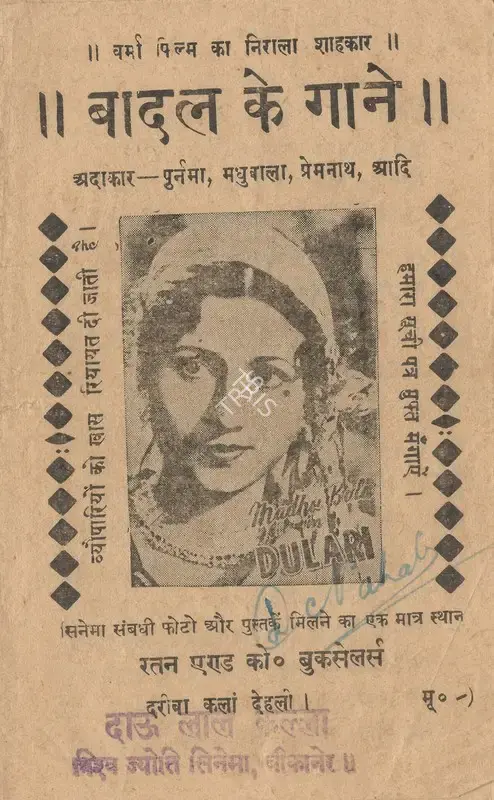 ॥ वर्मा फिल्म का निराला शाहकार ॥
॥ बादल के गाने ॥
अदाकार—पुर्नमा, मधुवाला, प्रेमनाथ, आदि
व्यौपारियों को खास रियायत दी जाती है।
हमारा सूची पत्र मुफ्त मँगाऐं।
Madhu Bala
DULARI
सिनेमा संबधी फोटो और पुस्तकें मिलने का एक मात्र स्थान
रतन एण्ड को० बुकसेलर्स
दरीवा कलां देहली।
मू० -)
दाऊ लाल कल्ला
विश्व ज्योति सिनेमा, बीकानेर॥